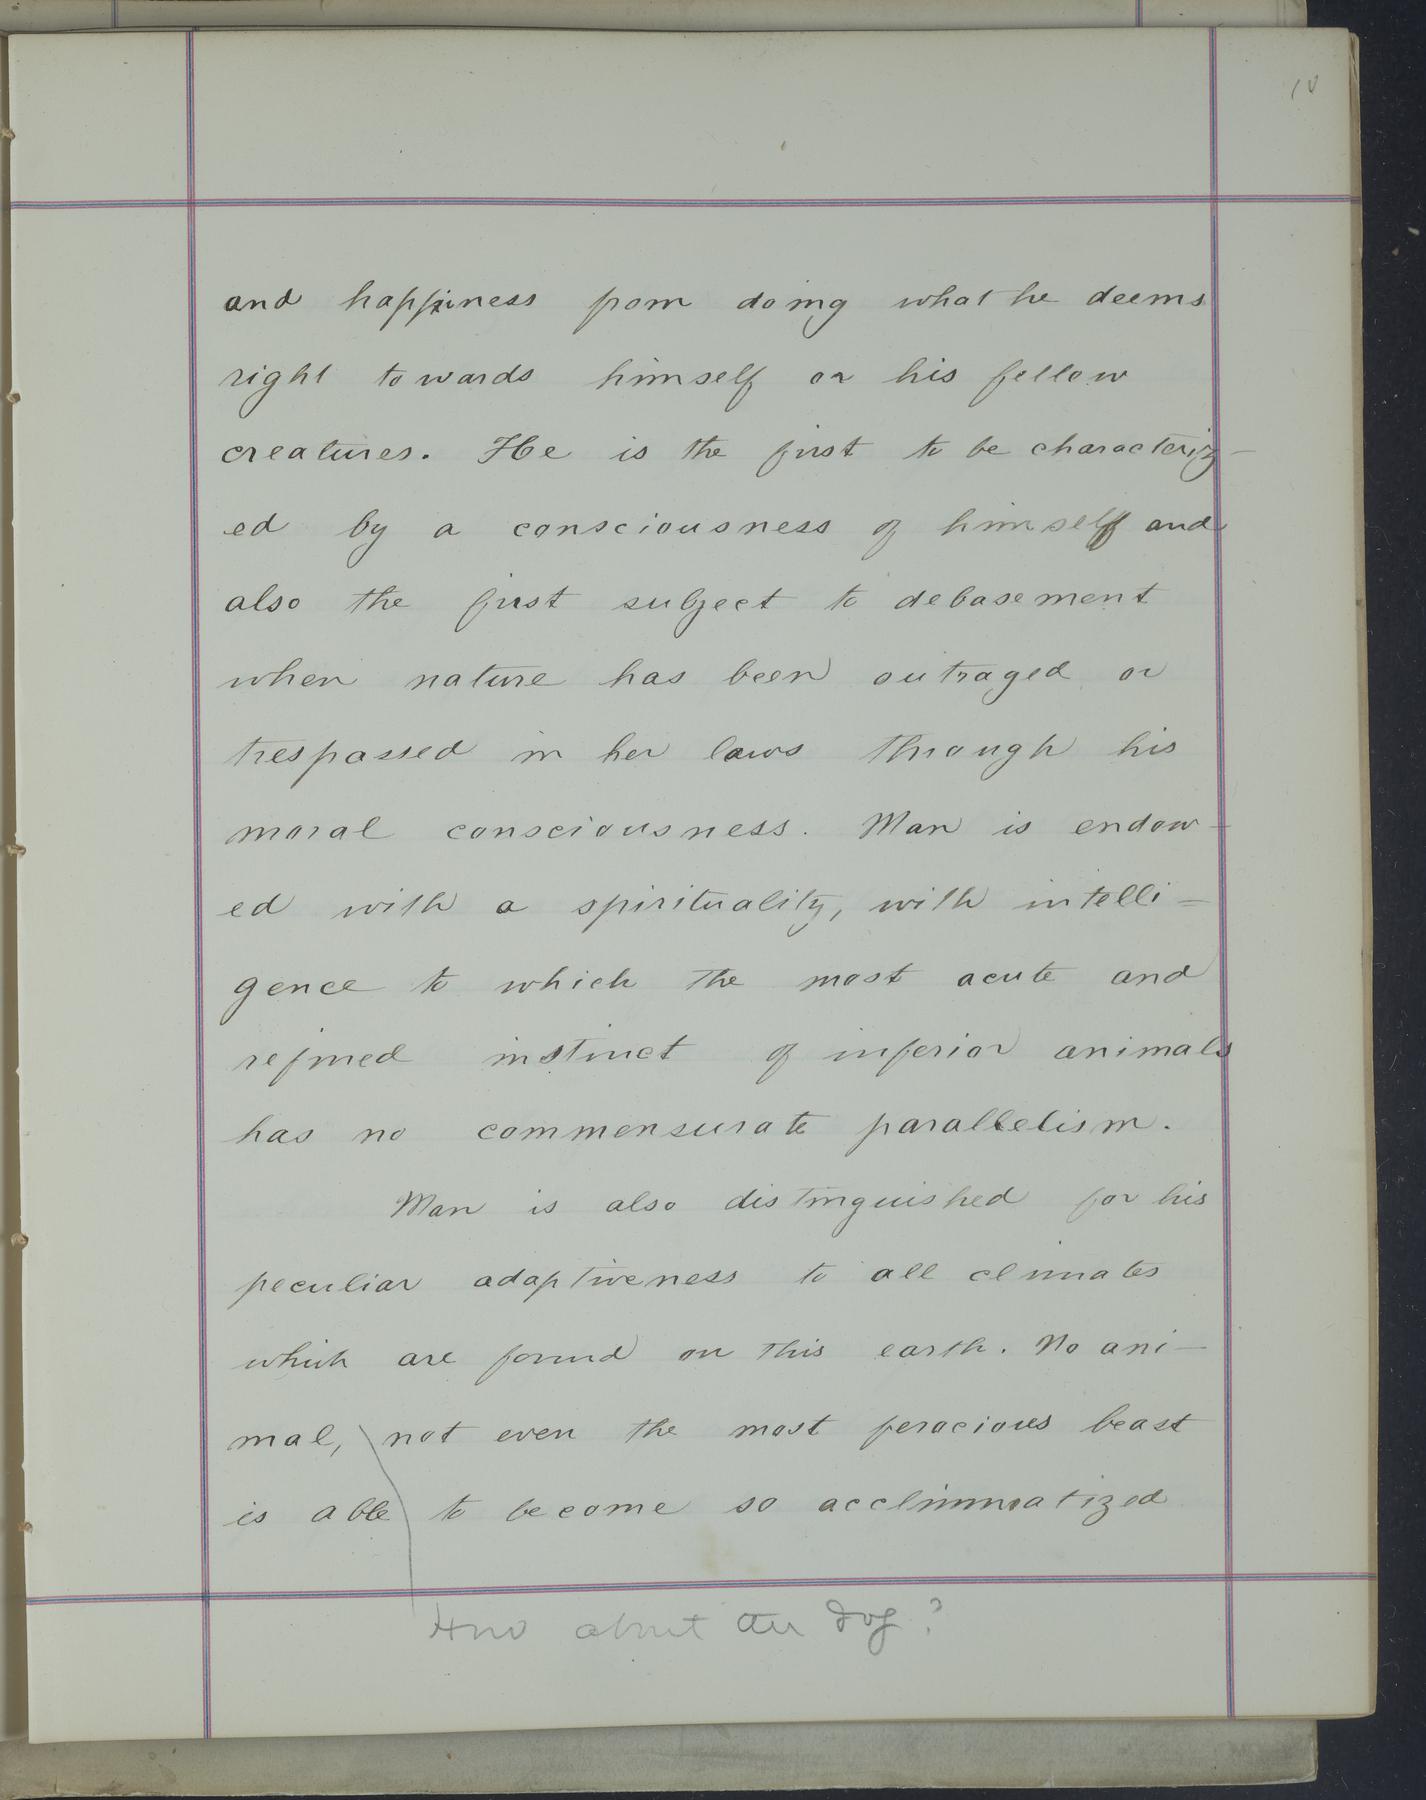 10
and happiness from doing what he deems
right towards himself or his fellow
creatures. He is the first to be characteriz-
ed by a consciousness of himself and
also the first subject to debasement
when nature has been outraged or
trespassed in her laws through his
moral consciousness. Man is endow-
ed with a spirituality, with intelli=
gence to which the most acute and
refined instinct of inferior animals
has no commensurate parallelism.
Man is also distinguished for his
peculiar adaptiveness to all climates
which are found on this earth. No ani-
mal, not even the most ferocious beast
is able to become so acclimmatized
How about the dog?